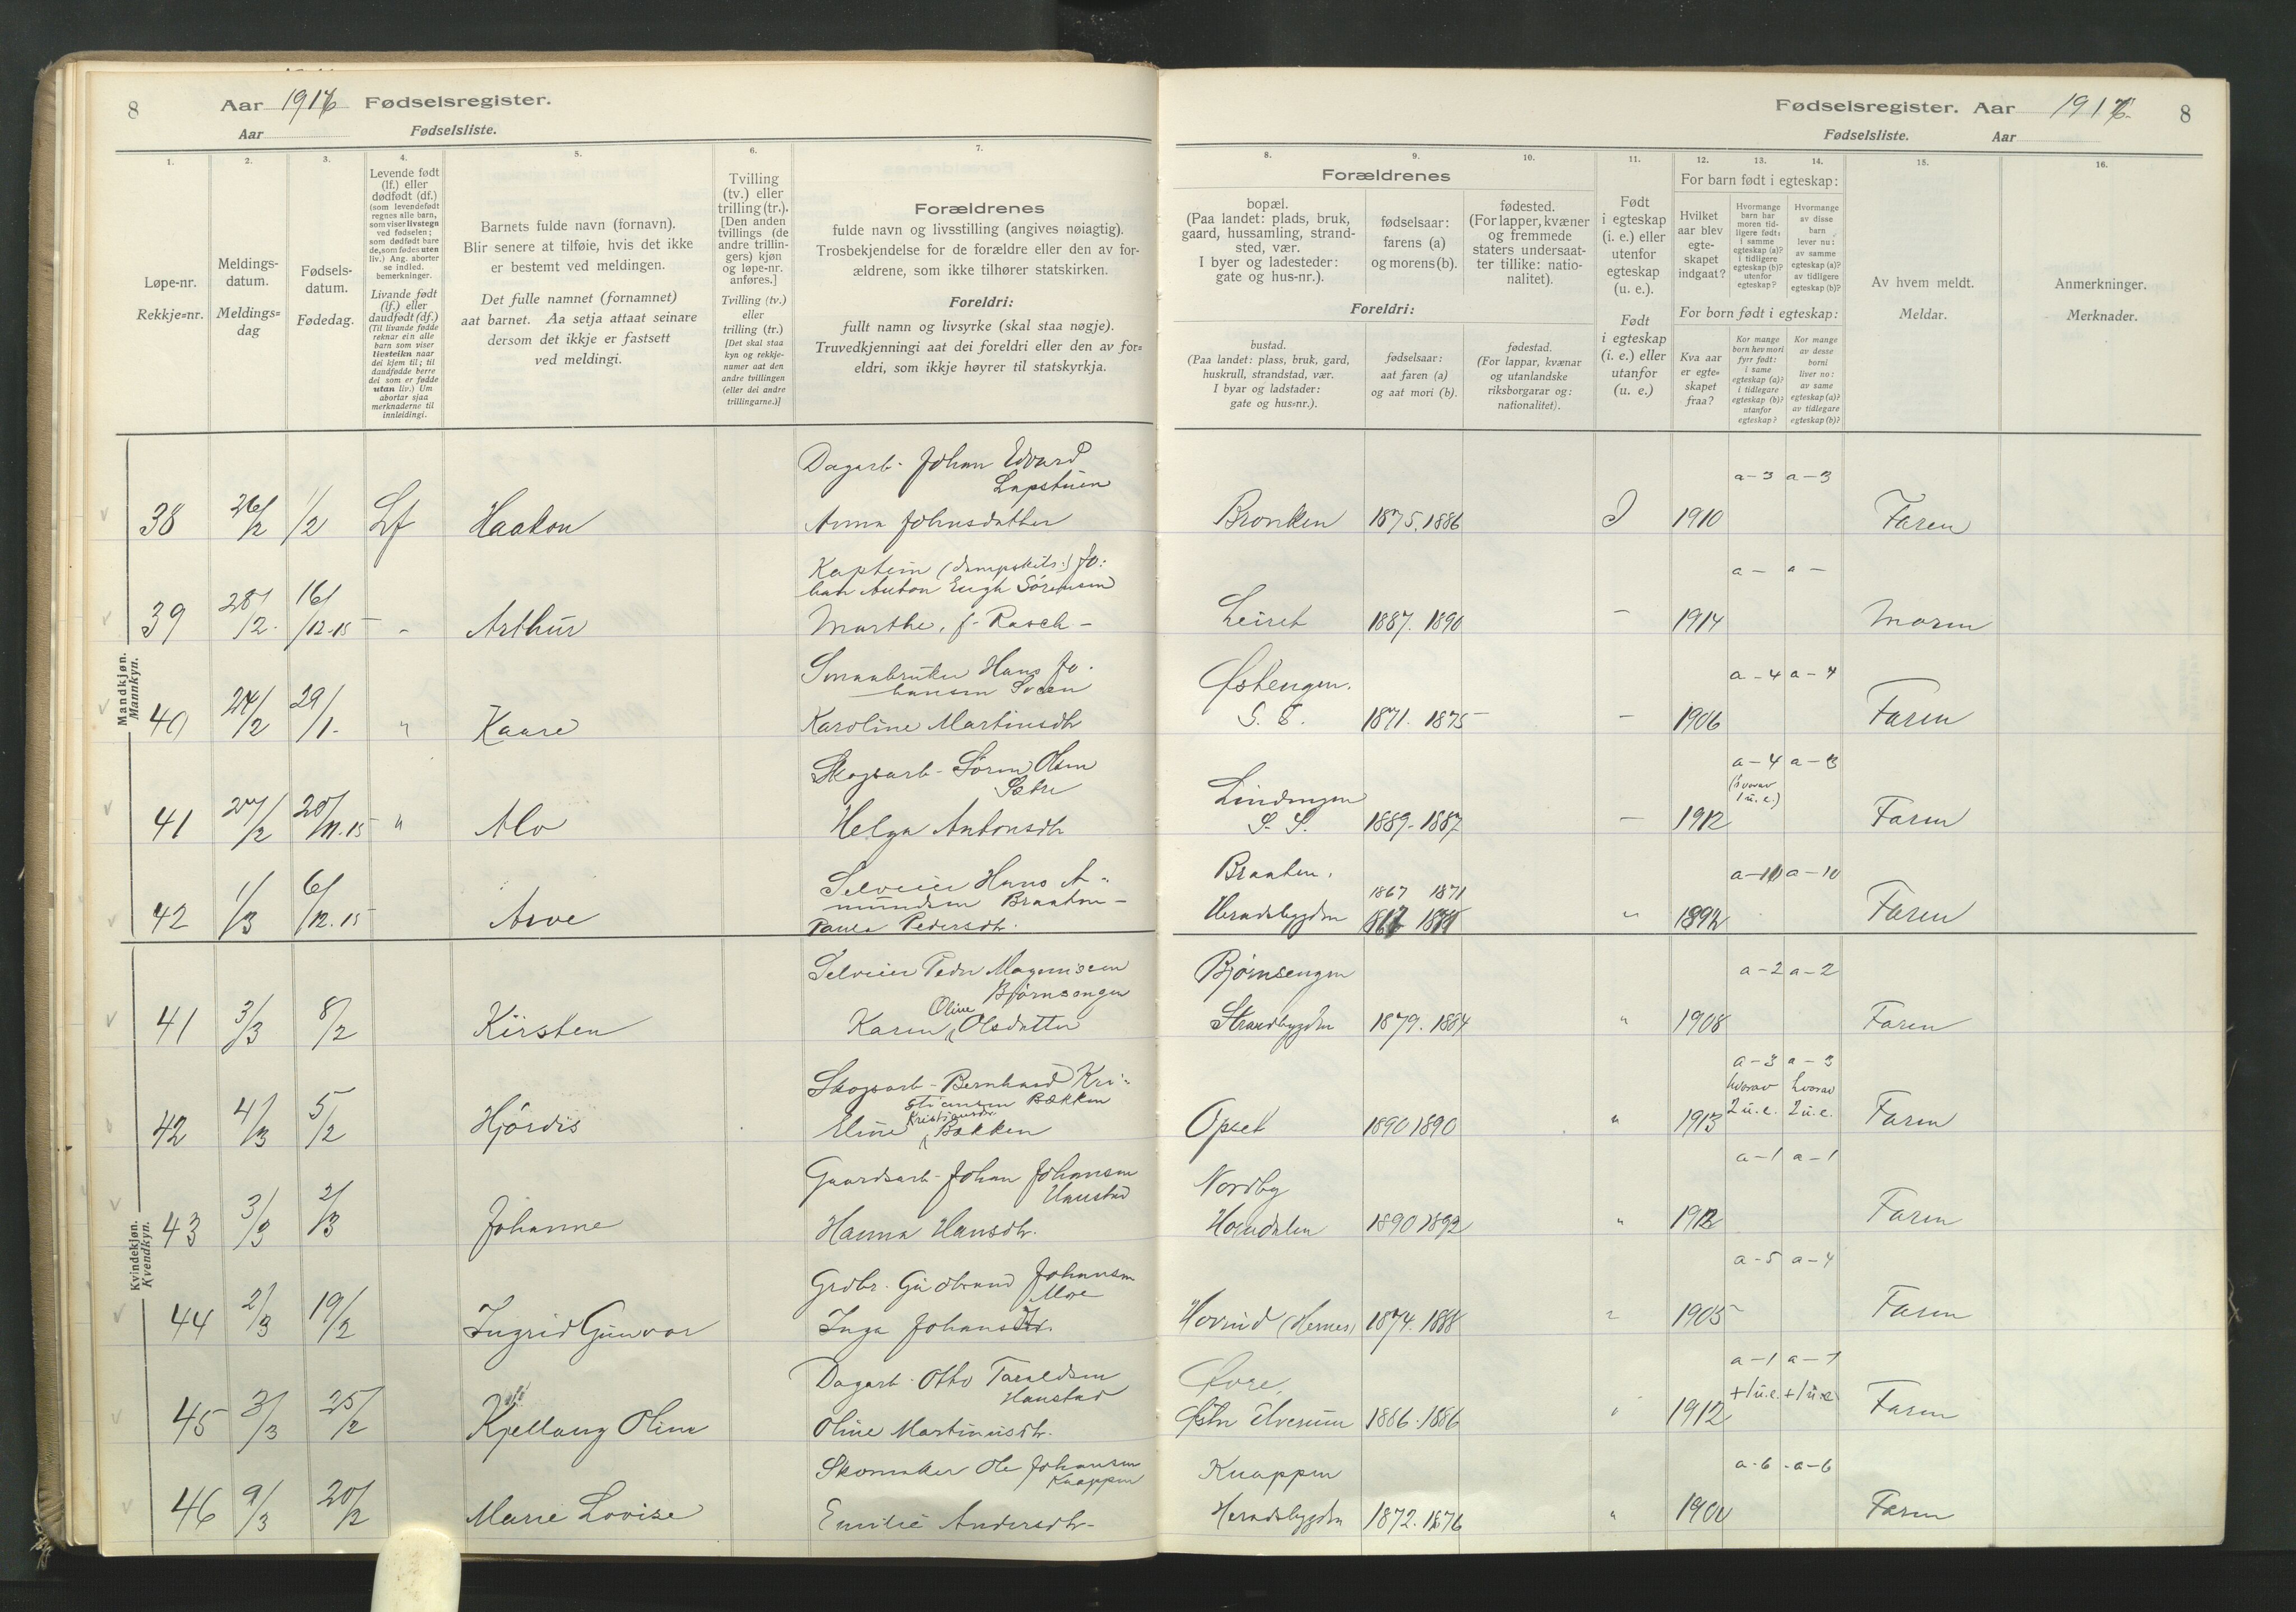 8 Aar 1916 Fødselsregister.
Aar Fødselsliste.
1. 2. 3. 4. 5. 6. 7.
Løpe-nr.
Rekkje=nr.
Meldings-
datum.
Meldings=
dag
Fødsels-
datum.
Fødedag.
Levende født
(lf.) eller
dødfødt (df.)
(som levendefødt
regnes alle barn,
som viser livstegn
ved fødselen;
som dødfødt bare
de, som fødes uten
liv.) Ang. aborter
se indled.
bemerkninger.
Livande født
(lf.) eller
daudfødt (df.)
(Til livande fødde
reknar ein alle
barn som viser
livsteikn naar
dei kjem til; til
daudfødde berre
dei som er fødde
utan liv.) Um
abortar sjaa
merknaderne til
innleidingi.
Barnets fulde navn (fornavn).
Blir senere at tilføie, hvis det ikke
er bestemt ved meldingen.
Det fulle namnet (fornamnet)
aat barnet. Aa setja attaat seinare
dersom det ikkje er fastsett
ved meldingi.
Tvilling
(tv.) eller
trilling (tr.).
[Den anden
tvillings (de
andre trillin-
gers) kjøn
og løpe-nr.
anføres.]
Tvilling (tv.)
eller
trilling (tr.)
[Det skal staa
kyn og rekkje-
numer aat den
andre tvillingen
(eller dei andre
trillingarne.)]
Forældrenes
fulde navn og livsstilling (angives nøiagtig).
Trosbekjendelse for de forældre eller den av for-
ældrene, som ikke tilhører statskirken.
Foreldri:
fullt namn og livsyrke (skal staa nøgje).
Truvedkjenningi aat dei foreldri eller den av for=
eldri, som ikkje høyrer til statskyrkja.
Fødselsregister. Aar 1916. 8
Fødselsliste. Aar
8. 9. 10. 11. 12. 13. 14. 15. 16.
Forældrenes
bopæl.
(Paa landet: plads, bruk,
gaard, hussamling, strand-
sted, vær.
I byer og ladesteder:
gate og hus-nr.).
fødselsaar:
farens (a)
og morens (b).
fødested.
(For lapper, kvæner
og fremmede
staters undersaat-
ter tillike: natio-
nalitet).
Foreldri:
bustad.
(Paa landet: plass, bruk, gard,
huskrull, strandstad, vær.
I byar og ladstader:
gate og hus=nr.).
fødselsaar:
aat faren (a)
og aat mori (b).
fødestad.
(For lappar, kvænar
og utanlandske
riksborgarar og:
nationalitet).
Født
i egteskap
(i. e.) eller
utenfor
egteskap
(u. e.).
Født
i egteskap
(i. e.) eller
utanfor
(u. e.)
For barn født i egteskap:
Hvilket
aar blev
egte-
skapet
indgaat?
Hvormange
barn har
moren tid-
ligere født:
i samme
egteskap (a)?
i tidligere
egteskap (b)?
utenfor
egteskap?
Hvormange
av disse
barn
lever nu:
av samme
egteskap (a)?
av tidligere
egteskap (b)?
For born født i egteskap:
Kva aar
er egte=
skapet
fraa?
Kor mange
born hev mori
fyrr født:
i same
egteskap (a)?
i tidlegare
egteskap (b)?
utanfor
egteskap?
Kor mange
av desse
borni
liver no:
av same
egteskap (a)?
av tidlegare
egteskap (b)?
Av hvem meldt.
Meldar.
Anmerkninger.
Merknader.
Mandkjøn.
Mannkyn.
Dagarb. Johan Edvard
Lapstuen a-3 a-3
38 26/2 1/2 Lf Haakon Anna Johnsdatter Bronken 1875. 1886 I 1910 Faren
Kaptein (dampskibs.) Jo:
han Anton Engh Sörensen a- a-
39 28/2. 16/12-15 - Arthur Marthe, f. Rasch- Leiret 1887. 1890 - 1914 Moren
Smaabruker Hans Jo-
hansen Østengen. a-4 a-4
40 24/2 29/1- " Kaare Karoline Martinsdtr S. E. 1871. 1875 - 1906 Faren
Skogsarb- Sören Olsen
Sætre Lindengen a-4 a-3
(hvorav
1 u.e.)
41 27/2 20/11.15 " Alv Helga Antonsdtr S. S. 1889-1887 - 1912 Faren
Selveier Hans A-
mundsen Braaten- Braaten, 1867 1871 a-10 a-10
42 1/3 6/12.15 Arve Paula Pedersdtr. Heradsbygden " 1892 Faren
Kvindekjøn.
Kvendkyn.
Selveier Peder Magnussen
Björnsengen Bjørnsengen a-2 a-2
41 3/3 8/2 Kirsten Karen Oline Olsdatter Strandbygden 1879. 1884 " 1908 Faren
Skogsarb- Bernhard Kri-
stiansen Bækken a-3 a-3
hvorav hvorav
42 4/3 5/2 Hjördis Eline Kristiansdr. Bækken Opset 1890 1890 " 1913 2 u.e. 2 u.e. Faren
Gaardsarb- Johan Johansen
Hanstad Nordby a-1 a-1
43 3/3 2/3 Johanne Hanna Hansdtr. Horndalen 1890 1892 " 1912 Faren
Grdbr. Gudbrand Johansen
Moe a-5 a-4
44 2/3 19/2 Ingrid Gunvor Inga Johansdtr. Hovind (Hernes) 1874. 1888 " 1905 Faren
Dagarb. Otto Taraldsen
Hanstad Øvre, a-1 a-1
+1 u.e. +1 u.e
45 3/3 25/2 Kjellaug Oline Oline Martinusdtr. Østre Elverum 1886. 1886 " 1912 Faren
Skomaker Ole Johansen
Knappen Knappen a-6 a-6
46 9/3 20/2 Marie Lovise Emilie Andersdtr- Heradsbygden 1872. 1876 " Faren